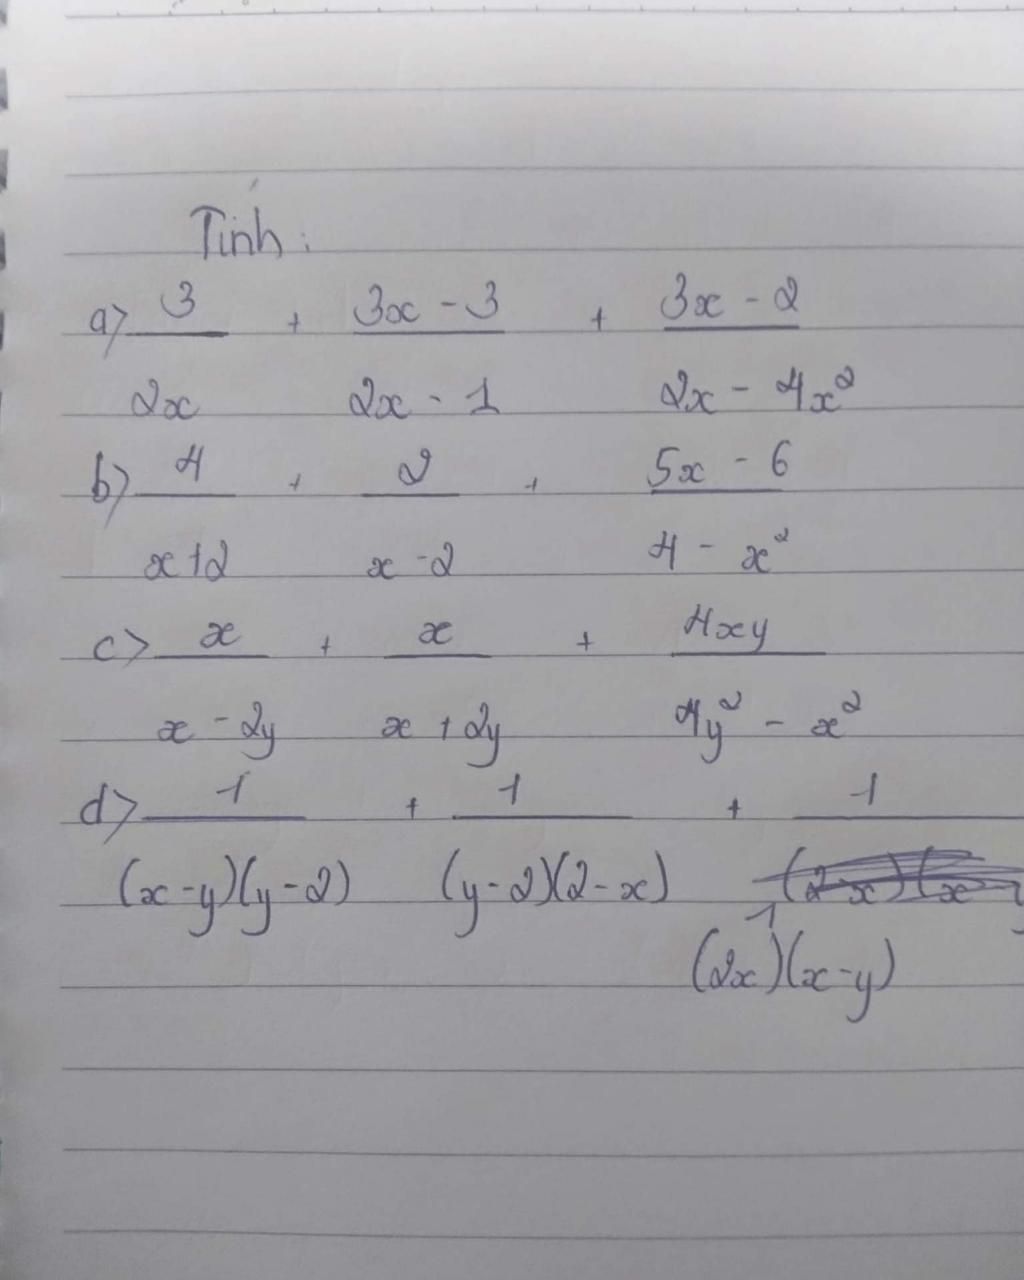 Tính:
a> 3/2x + 3x - 3/2x - 1 + 3x - 2/2x - 4x²
b> 4/x+2 + 2/x-2 + 5x - 6/4 - x²
c> x/x - 2y + x/x + 2y + 4xy/4y² - x²
d> 1/(x-y)(y-2) + 1/(y-2)(2-x) + 1/
1
(2x)(x-y)